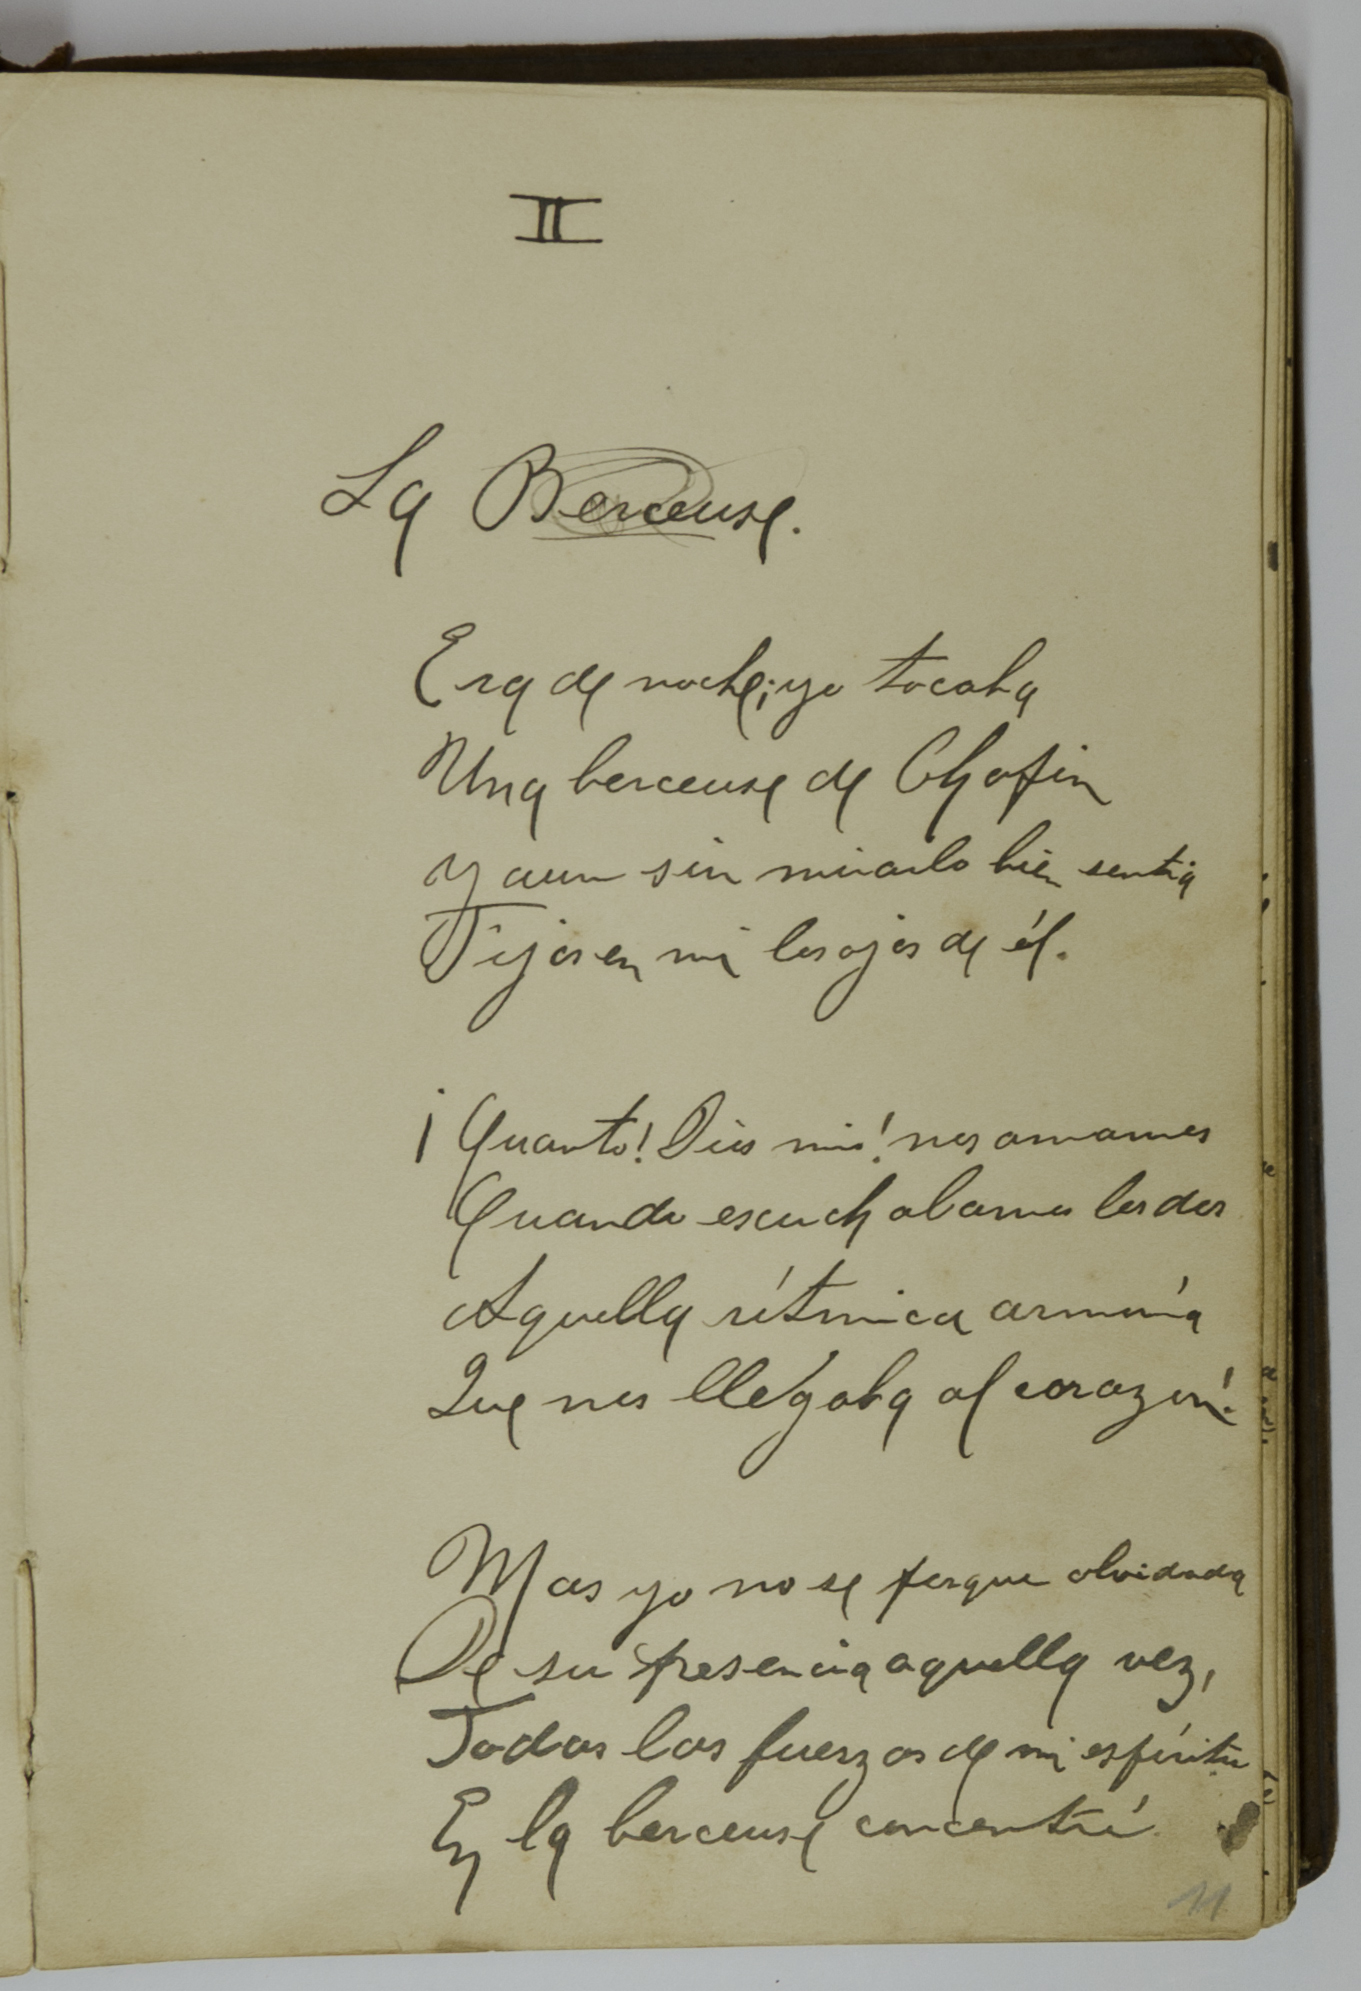 II
La Berceuse.
Era de noche; yo tocaba
Una berceuse de Chopin
y aun sin mirarlo bien sentia
Fijos en mi los ojos de él.
¡Quanto! Dios mio! nos amamos
Quando escuchabamos los dos
Aquella rítmica armonía
Que nos llegaba al corazón!
Mas yo no se porque olvidada
De su presencia aquella vez,
Todas las fuerzas de mi espíritu
En la berceuse concentré
11